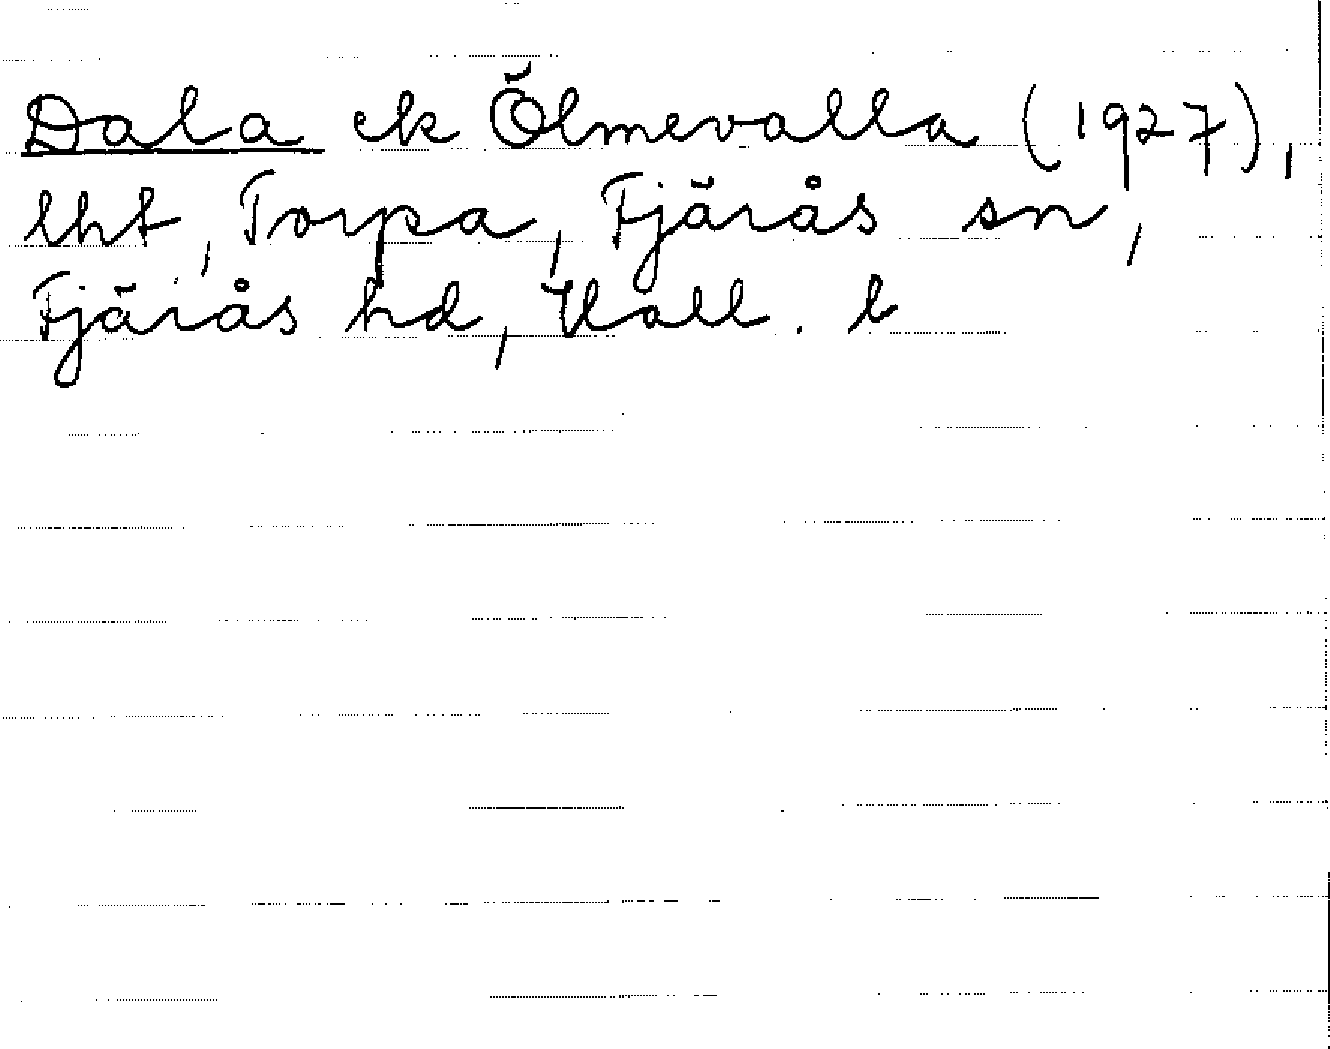 Dala ek Ölmevalla (1927),
lht, Torpa, Fjärås sn,
Fjärås hd, Hall. l